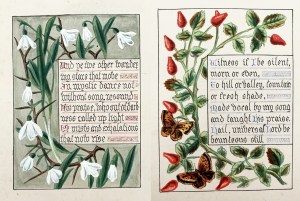 And ye five other wander
ing stars that move
In mystic dance not
without song, resound
His praise, who out of dark
ness called up light
Ye mists and exhalations
that now rise
Witness if I be silent,
morn or even,
To hill or valley, fountain
or fresh shade,
made vocal by my song
and taught his praise.
Hail, universal Lord be
bounteous still